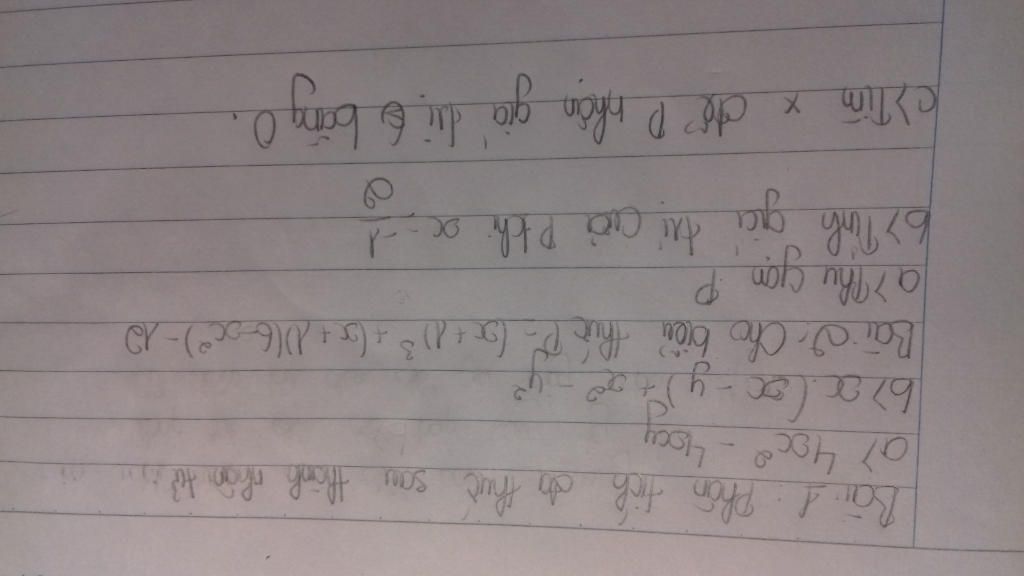 Bài 1: Phân tích đa thức sau thành nhân tử
a> 4x² - 4xy
b> x(x - y) + x² - y²
Bài 2: Cho biểu thức P = (x+1)³ + (x+1)(6-x²) - 12
a> Thu gọn P
b> Tính giá trị của P khi x = -1/2
c> Tìm x để P nhận giá trị bằng 0.